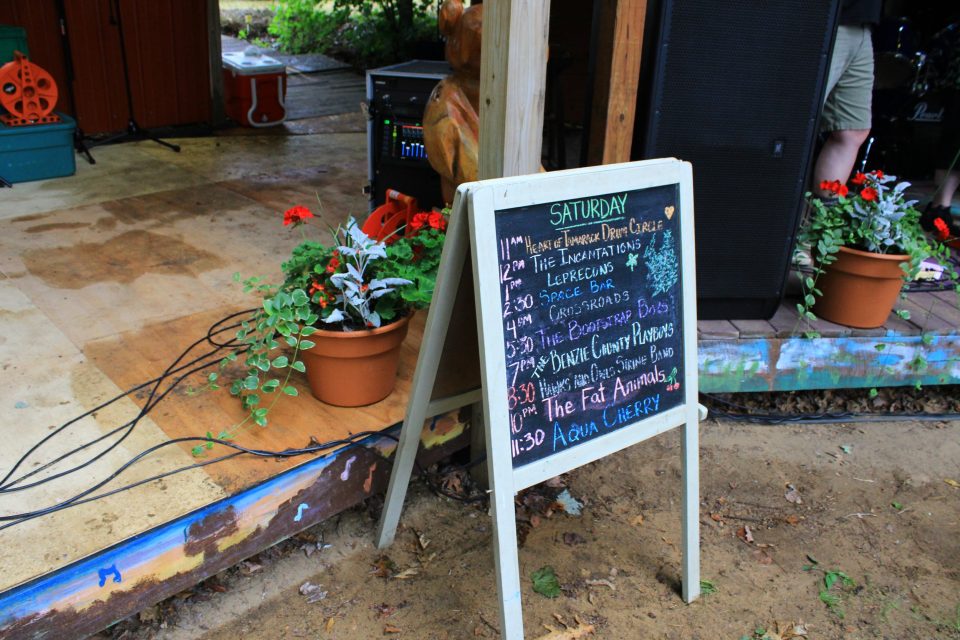 SATURDAY
11 AM HEART OF TAMARACK DRUM CIRCLE
12 PM THE INCANTATIONS
1 PM LEPRECONS
2:30 SPACE BAR
4 PM CROSSROADS
5:30 THE BOOTSTRAP BOYS
7 PM THE BENZIE COUNTY PLAYBOYS
8:30 HAWKS AND OWLS STRING BAND
10 PM The Fat Animals
11:30 AQUA CHERRY
Pearl